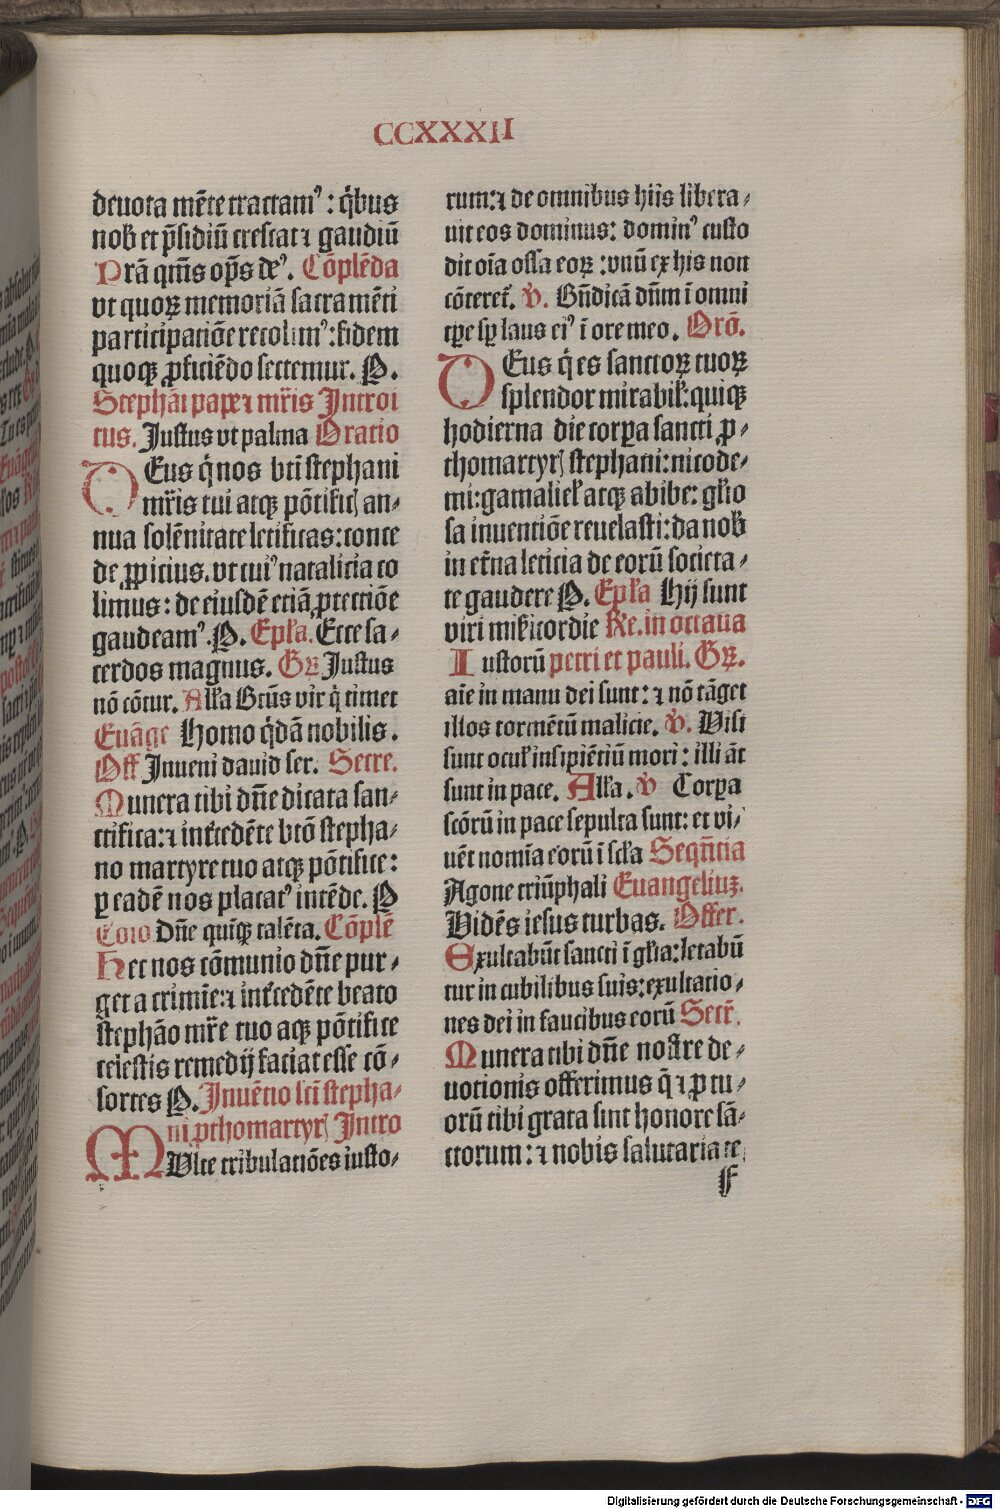 CCXXXII
deuota mẽte tractamꝰ : q̇bus
nob̃ et p̃sidiũ crescat ⁊ gaudiũ
Prã qm̃s op̃s deꝰ. Cõplẽda
vt quoꝝ memoriã sacramẽti
participatiõe recolimꝰ: fidem
quoqꝫ ꝓficiẽdo sectemur. P.
Stephãi pape ⁊ mr̃is Introi
tus. Justus vt palma Oratio
DEus q̇ nos bti̇ stephani
mr̃is tui atqꝫ põtificꝭ an⸗
nua solẽnitate letificas: conce
de ꝓpicius. vt cuiꝰ natalicia co
limus: de eiusdẽ eciã ꝓtectiõe
gaudeamꝰ. P. Epl̃a. Ecce sa⸗
cerdos magnus. Gꝝ Justus
nõ cõtur. All̃a Btũs vir q̇ timet
Euãge Homo q̇dã nobilis.
Off Inueni dauid ser. Secre.
Munera tibi dñe dicata san⸗
ctifica: ⁊ int̃cedẽte btõ stepha⸗
no martyre tuo atqꝫ põtifice:
ꝑ eadẽ nos placatꝰ intẽde. P
Cõio Dñe quiqꝫ talẽta. Cõplẽ
Hec nos cõmunio dñe pur⸗
get a crimĩe: ⁊ int̃cedẽte beato
stephão mr̃e tuo aqꝫ põtifice
celestis remedij faciat esse cõ⸗
sortes P. Inuẽtio sc̃i stepha⸗
ni ꝓthomartyrꝭ Intro
MUlte tribulatiões iusto⸗
rum: ⁊ de omnibus hijs libera⸗
uit eos dominus: dominꝰ custo
dit oĩa ossa eoꝝ : vnũ ex his non
cõteret̃. ℣. Bñdicã dñm ĩ omni
tꝑe sꝑ laus eiꝰ ĩ ore meo. Orõ.
DEus q̇ es sanctoꝝ tuoꝝ
splendor mirabil̃: quiqꝫ
hodierna die corꝑa sancti ꝓ⸗
thomartyrꝭ stephani: nicode⸗
mi: gamaliel̃ atqꝫ abibe: gl̃io
sa inuentiõe reuelasti: da nob̃
in et̃na leticia de eorũ societa⸗
te gaudere P. Epl̃a Hij sunt
viri mis̃icordie Re. in octaua
Iustorũ petri et pauli. Gꝝ.
aĩe in manu dei sunt: ⁊ nõ tãget
illos tormẽtũ malicie. ℣. Visi
sunt ocul̃ insipiẽtiũ mori: illi ãt
sunt in pace. All̃a. ℣ Corꝑa
scõrũ in pace sepulta sunt: et vi⸗
uẽt nomĩa eorũ ĩ scl̃a Seqñtia
Agone triũphali Euangeliuꝫ.
Vidẽs iesus turbas. Offer.
Exultabũt sancti ĩ gl̃ia: letabũ
tur in cubilibus suis: exultatio⸗
nes dei in faucibus eorũ Secr̃.
Munera tibi dñe nostre de⸗
uotionis offerimus q̃ ⁊ ꝓ tu⸗
orũ tibi grata sint honore sã⸗
ctorum: ⁊ nobis salutaria te
F
Digitalisierung gefördert durch die Deutsche Forschungsgemeinschaft - DFG